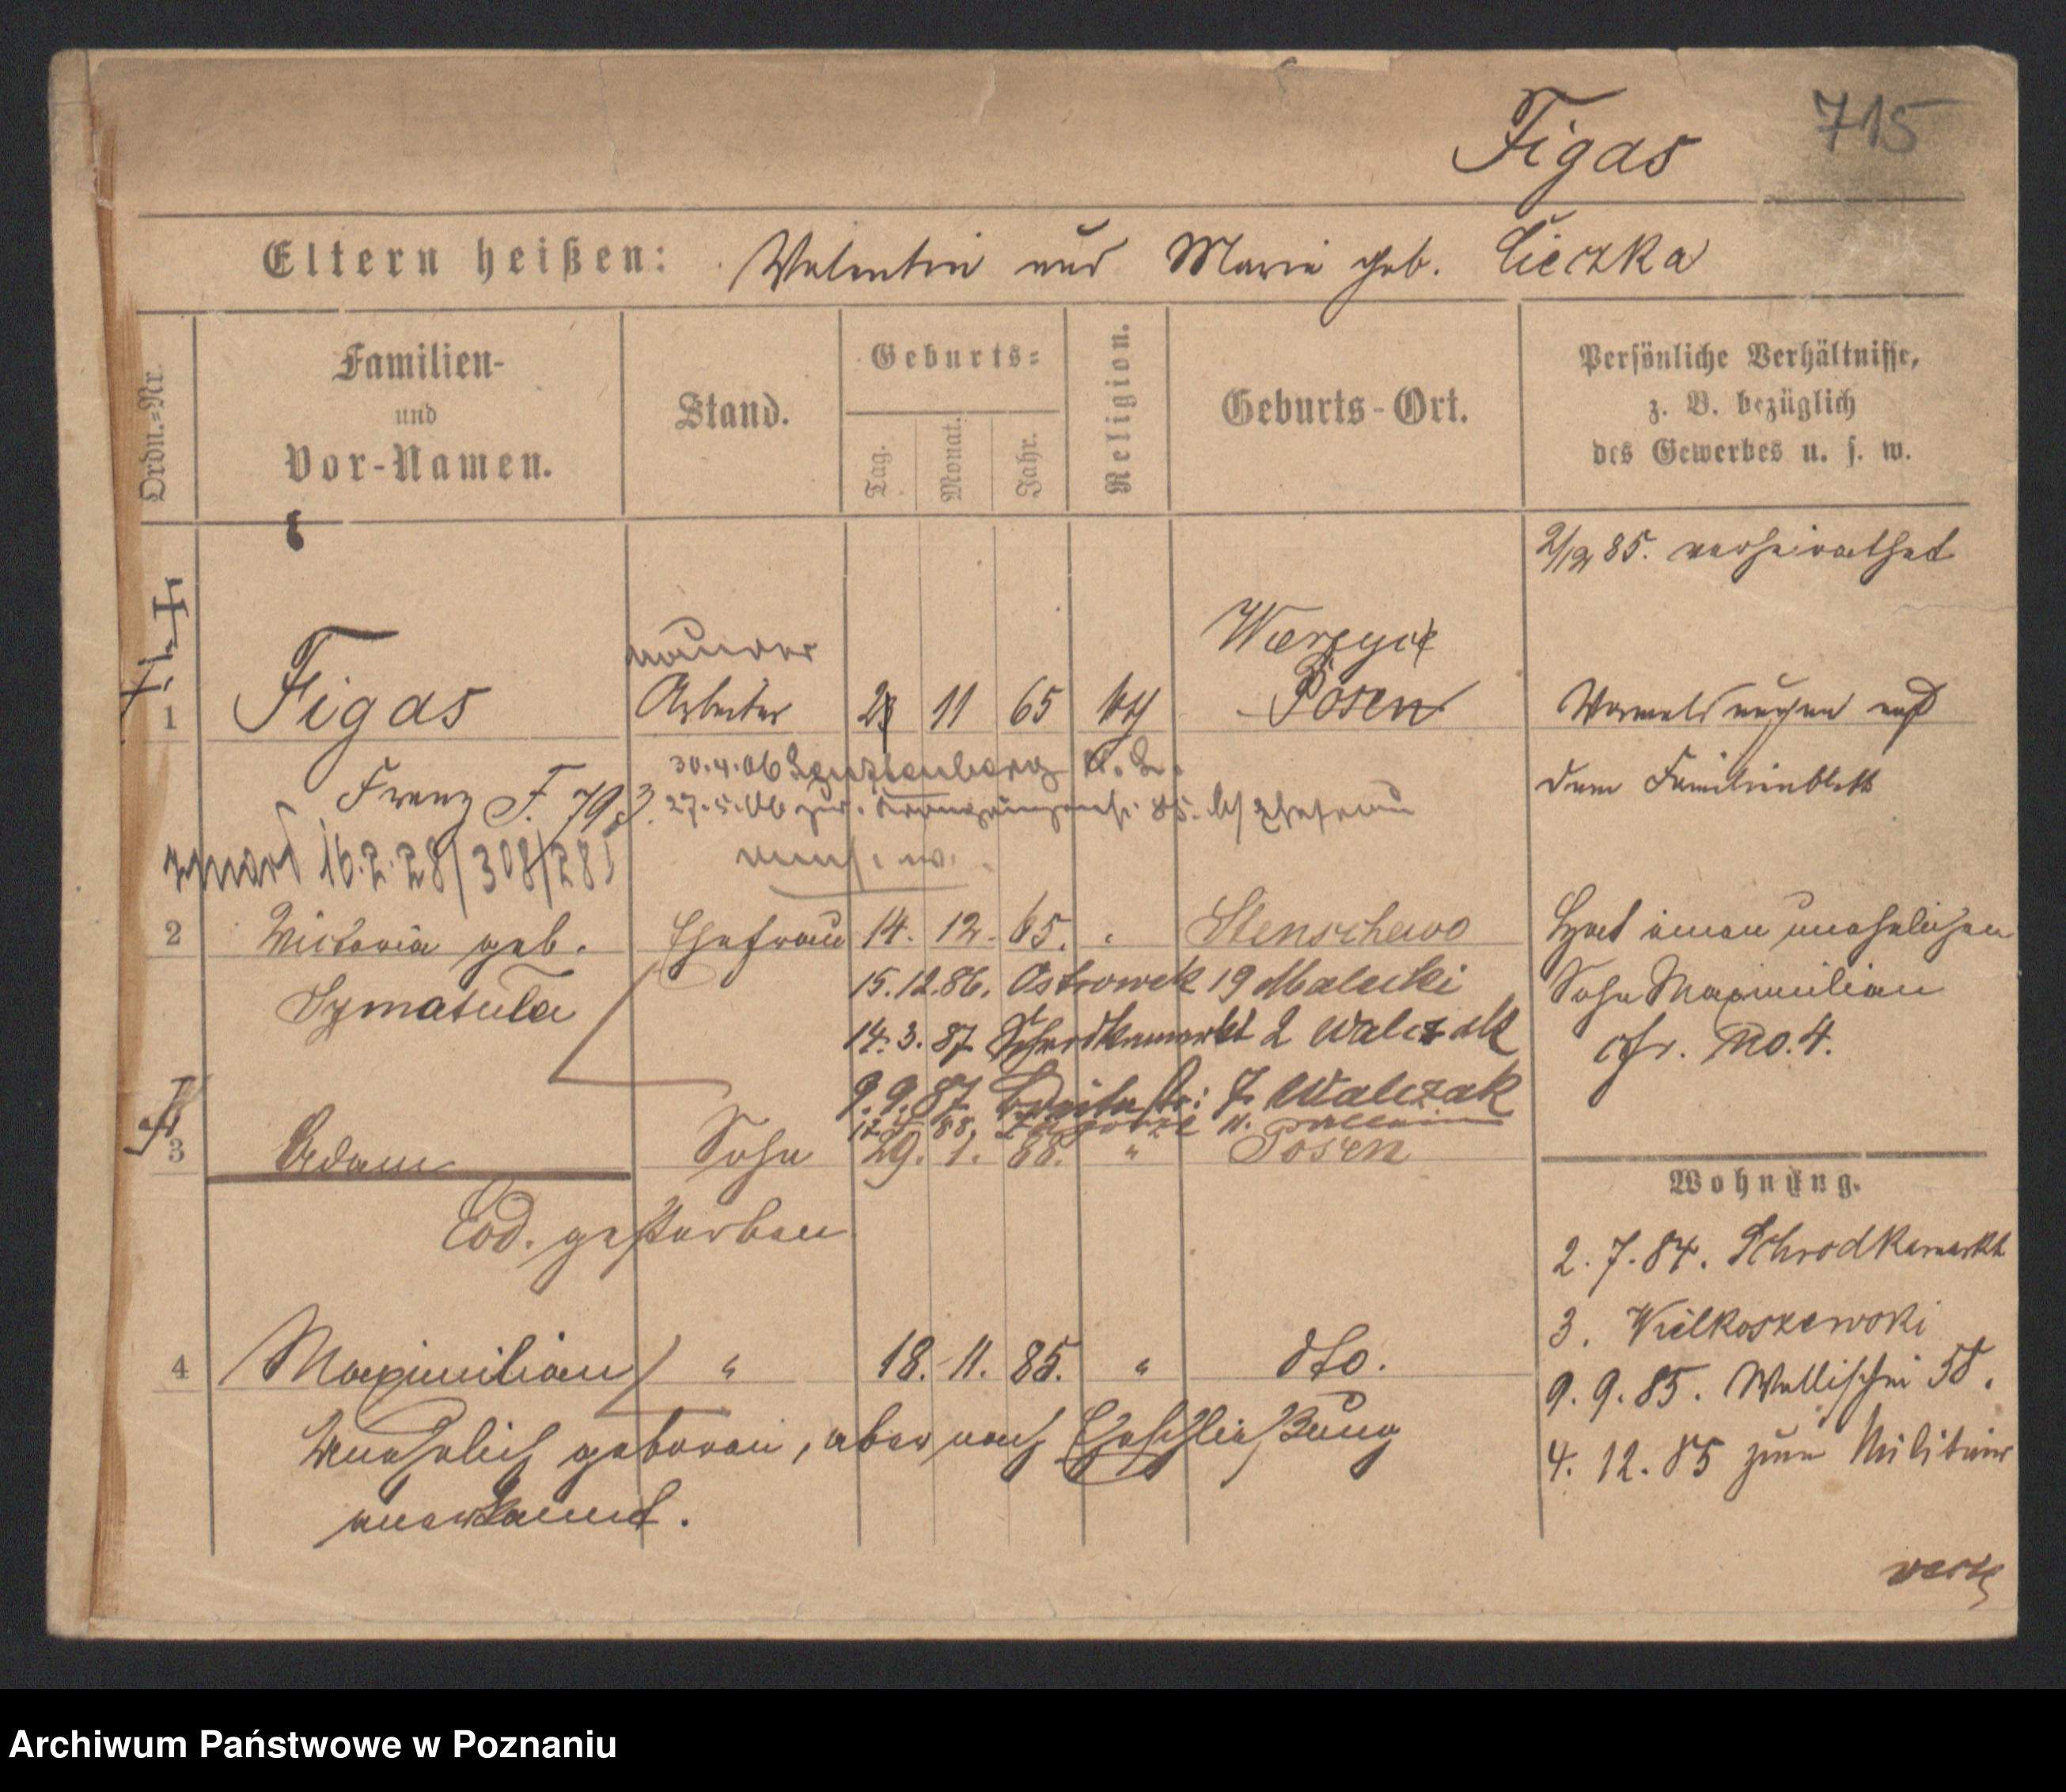 715
Figas
Eltern heißen: Valentin und Marie geb. Cieczka
Ordn.=Nr.
Familien-
und
Vor-Namen.
Stand.
Geburts=
Tag.
Monat.
Jahr.
Religion.
Geburts-Ort.
Persönliche Verhältnisse,
z. B. bezüglich
des Gewerbes u. s. w.
2/12 85. verheirathet
1 Figas Arbeiter 11 65 kth Posen
Franz F. 793.
Vormeldungen auf
dem Familienblatt
30.4.06
27.5.06 zur. Ehefrau
16.2.28/308/285
2 Victoria geb. Ehefrau 14. 12. 65. Stenschewo
Szmatula
Hat einen unehelichen
Sohn Maximilian
cfr. No. 4.
15.12.86. Ostrowek 19 Malecki
14.3.87 Schrodkamarkt 2 Walczak
9.9.87 7 Walczak
3 Adam Sohn 29. 1. 88. " Posen
Cod. gestorben
4 Maximilian " 18. 11. 85. " dto.
Unehelich geboren, aber nach Eheschließung
anerkannt.
Wohnung.
2. 7. 84. Schrodkamarkt
3. Wielkoszewski
9. 9. 85. Wallischei 58.
4. 12. 85 zum Militair